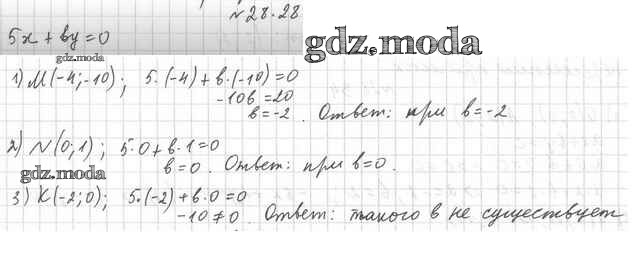 №28.28
5x + by = 0
gdz.moda
gdz.moda
1) M(-4;-10); 5·(-4)+в·(-10)=0
-10в=20
в=-2. Ответ: при в=-2
2) N(0;1); 5·0+в·1=0
в=0. Ответ: при в=0.
gdz.moda
3) K(-2;0); 5·(-2)+в·0=0
-10≠0. Ответ: такого в не существует